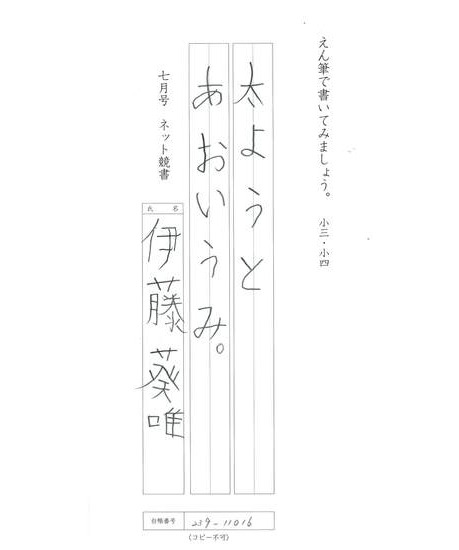 えん筆で書いてみましょう。 小三・小四
太ようと
あおいうみ。
七月号 ネット競書
氏名
伊藤葵唯
台帳番号 239-11016
(コピー不可)